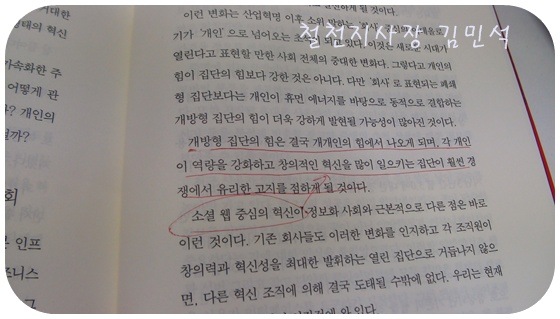 이런 변화는 산업혁명 이후 소위 말하는 '회사'
기가 '개인'으로 넘어오는
절천지사장 김민석
열린다고 표현할 만한 사회 전체의 중대한 변화다. 그렇다고 개인의
힘이 집단의 힘보다 강한 것은 아니다. 다만 '회사'로 표현되는 폐쇄
형 집단보다는 개인이 휴먼 에너지를 바탕으로 동적으로 결합하는
개방형 집단의 힘이 더욱 강하게 발현될 가능성이 많아진 것이다.
개방형 집단의 힘은 결국 개개인의 힘에서 나오게 되며, 각 개인
이 역량을 강화하고 창의적인 혁신을 많이 일으키는 집단이 훨씬 경
쟁에서 유리한 고지를 점하게 될 것이다.
소셜 웹 중심의 혁신이 정보화 사회와 근본적으로 다른 점은 바로
이런 것이다. 기존 회사들도 이러한 변화를 인지하고 각 조직원이
창의력과 혁신성을 최대한 발휘하는 열린 집단으로 거듭나지 않으
면, 다른 혁신 조직에 의해 결국 도태될 수밖에 없다. 우리는 현재
대한
의 혁신
가속화한 주
어떻게 관
가? 개인의
할까?
회
인프
즈니스